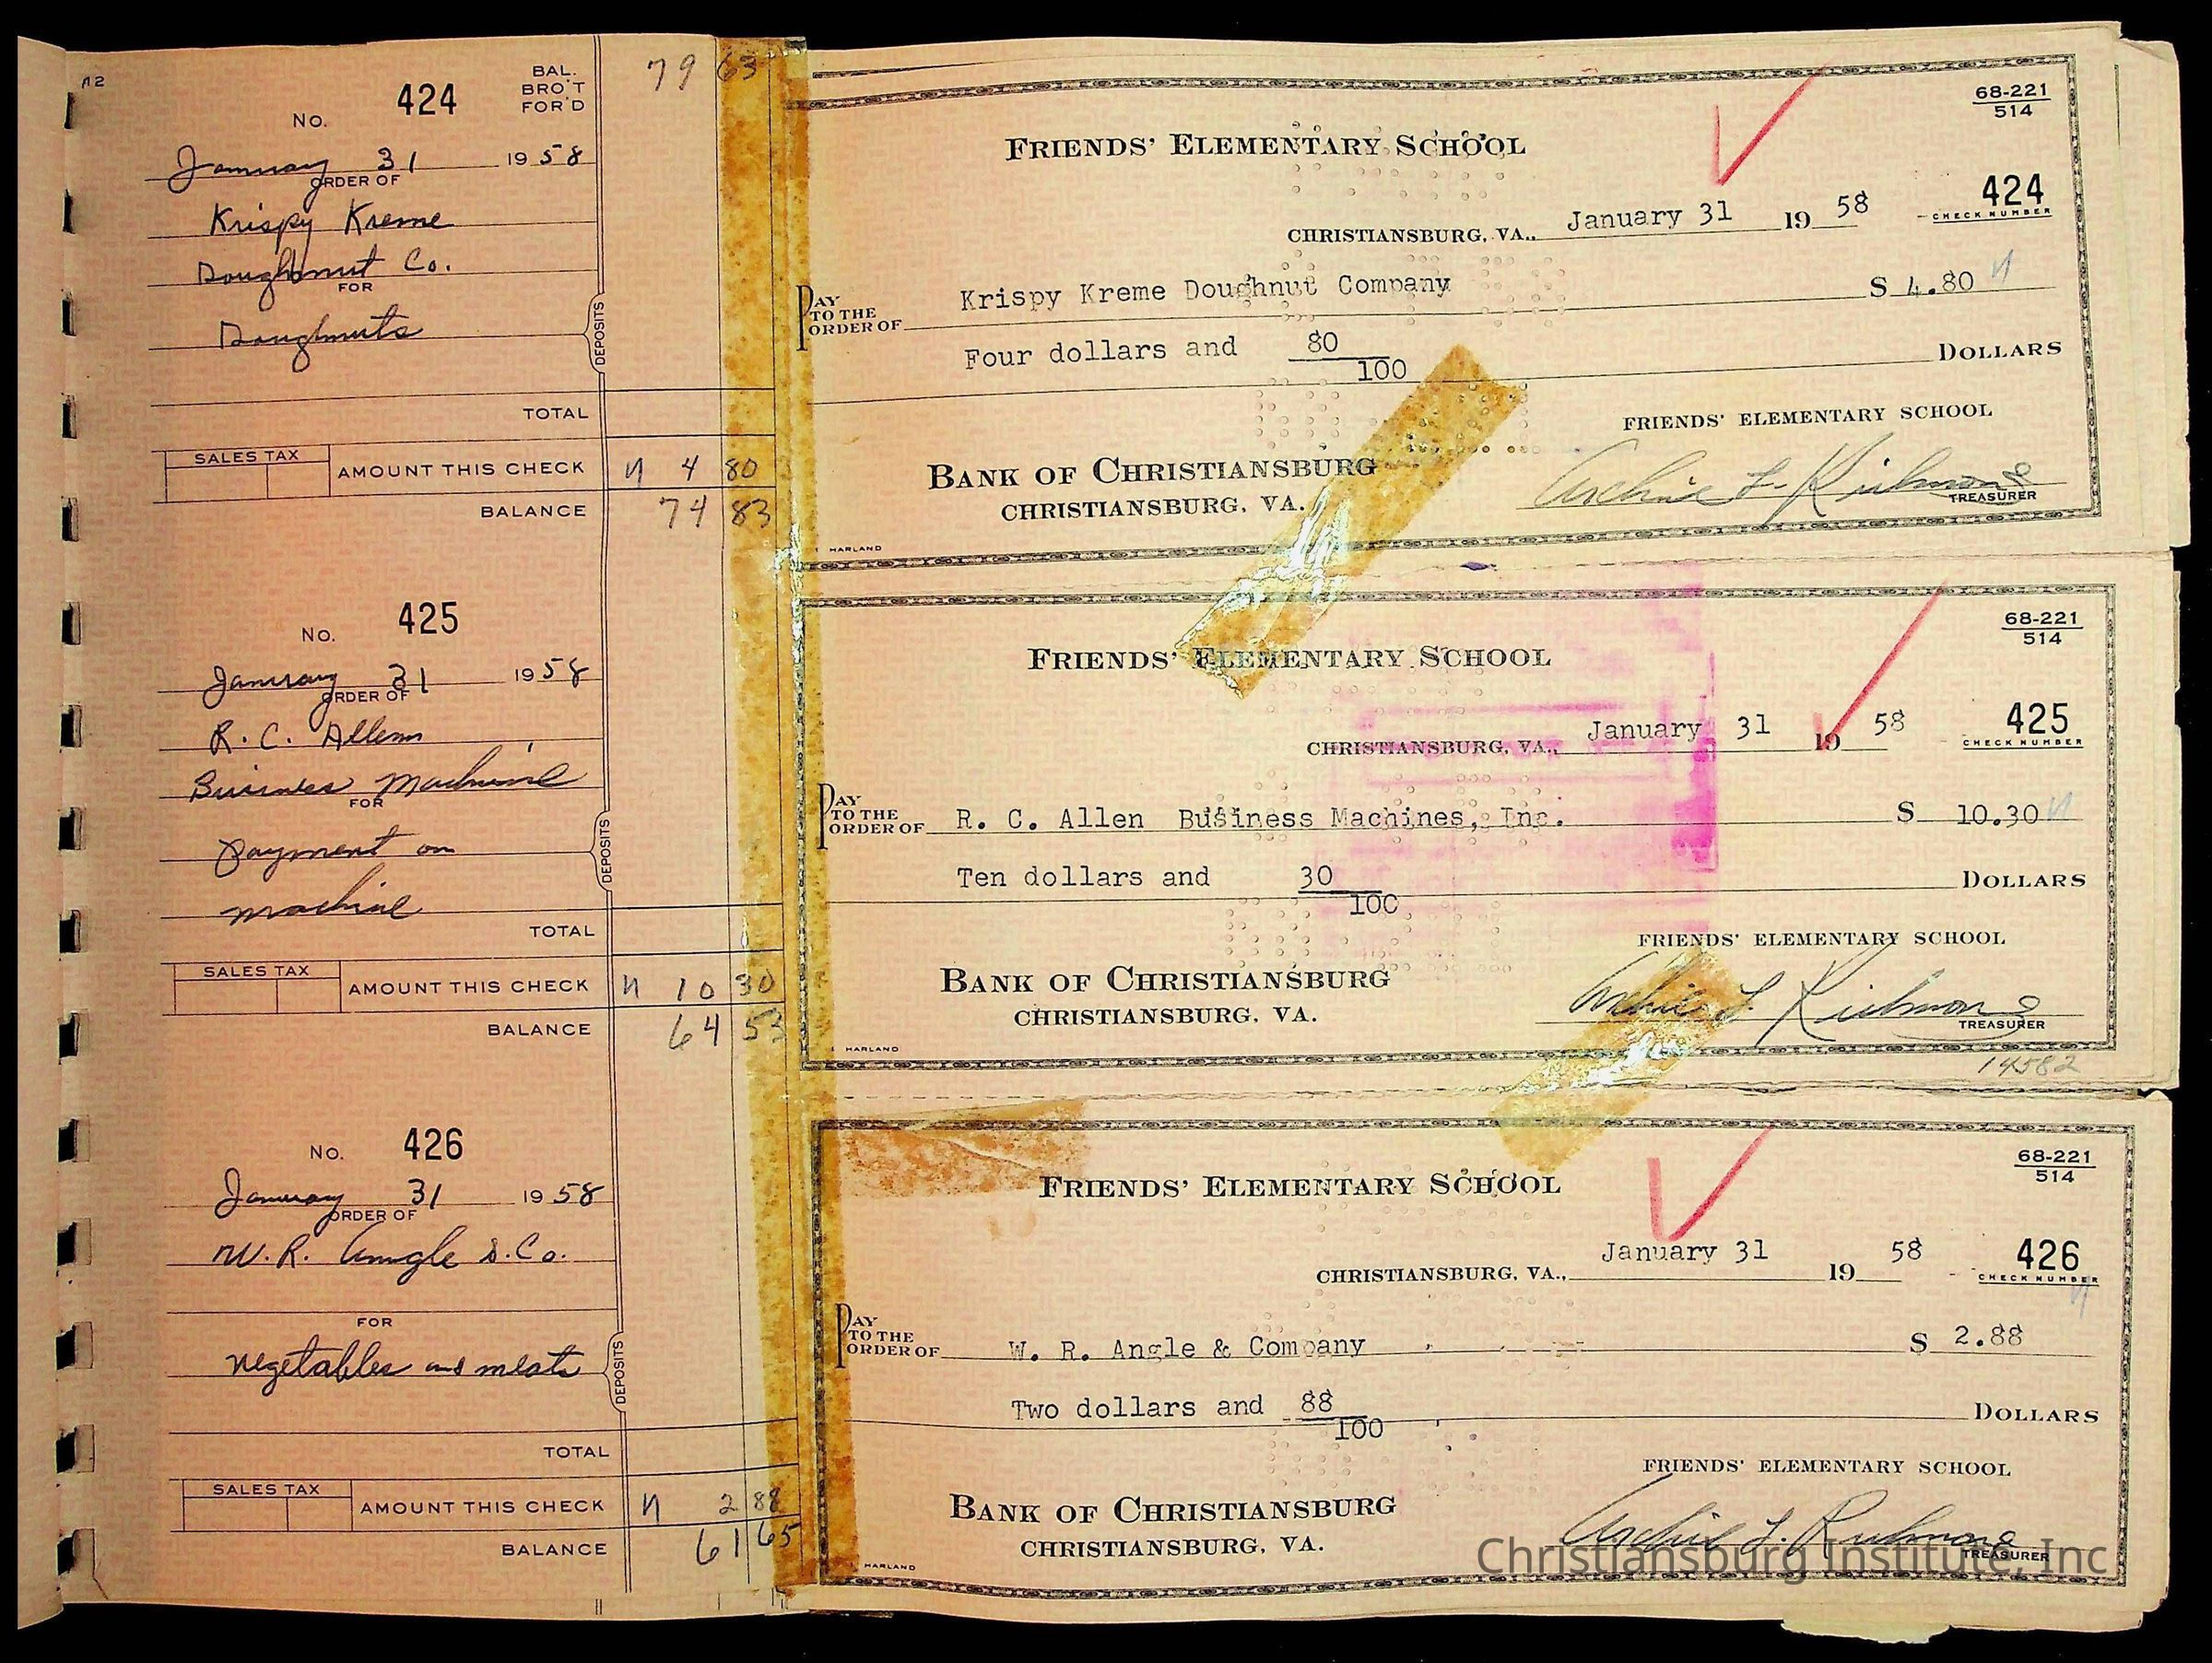 A2
No. 424 BAL. BRO'T FOR'D 79 63
January 31 1958
ORDER OF
Krispy Kreme
Doughnut Co.
FOR
Doughnuts
DEPOSITS
TOTAL
SALES TAX AMOUNT THIS CHECK 4 80
BALANCE 74 83
68-221
514
FRIENDS' ELEMENTARY SCHOOL
424
CHECK NUMBER
CHRISTIANSBURG, VA., January 31 19 58
PAY TO THE ORDER OF Krispy Kreme Doughnut Company $ 4.80
Four dollars and 80/100 DOLLARS
FRIENDS' ELEMENTARY SCHOOL
BANK OF CHRISTIANSBURG
CHRISTIANSBURG, VA.
Archie L. Richmond
TREASURER
HARLAND
No. 425
January 31 1958
ORDER OF
R. C. Allen
Business Machine
FOR
payment on
machine
DEPOSITS
TOTAL
SALES TAX AMOUNT THIS CHECK 10 30
BALANCE 64 53
68-221
514
FRIENDS' ELEMENTARY SCHOOL
425
CHECK NUMBER
CHRISTIANSBURG, VA., January 31 19 58
PAY TO THE ORDER OF R. C. Allen Business Machines, Inc. $ 10.30
Ten dollars and 30/100 DOLLARS
FRIENDS' ELEMENTARY SCHOOL
BANK OF CHRISTIANSBURG
CHRISTIANSBURG, VA.
Archie L. Richmond
TREASURER
HARLAND
14582
No. 426
January 31 1958
ORDER OF
W. R. Angle & Co.
FOR
vegetables and meats
DEPOSITS
TOTAL
SALES TAX AMOUNT THIS CHECK 2 88
BALANCE 61 65
68-221
514
FRIENDS' ELEMENTARY SCHOOL
426
CHECK NUMBER
CHRISTIANSBURG, VA., January 31 19 58
PAY TO THE ORDER OF W. R. Angle & Company $ 2.88
Two dollars and 88/100 DOLLARS
FRIENDS' ELEMENTARY SCHOOL
BANK OF CHRISTIANSBURG
CHRISTIANSBURG, VA.
Archie L. Richmond
TREASURER
HARLAND
Christiansburg Institute, Inc